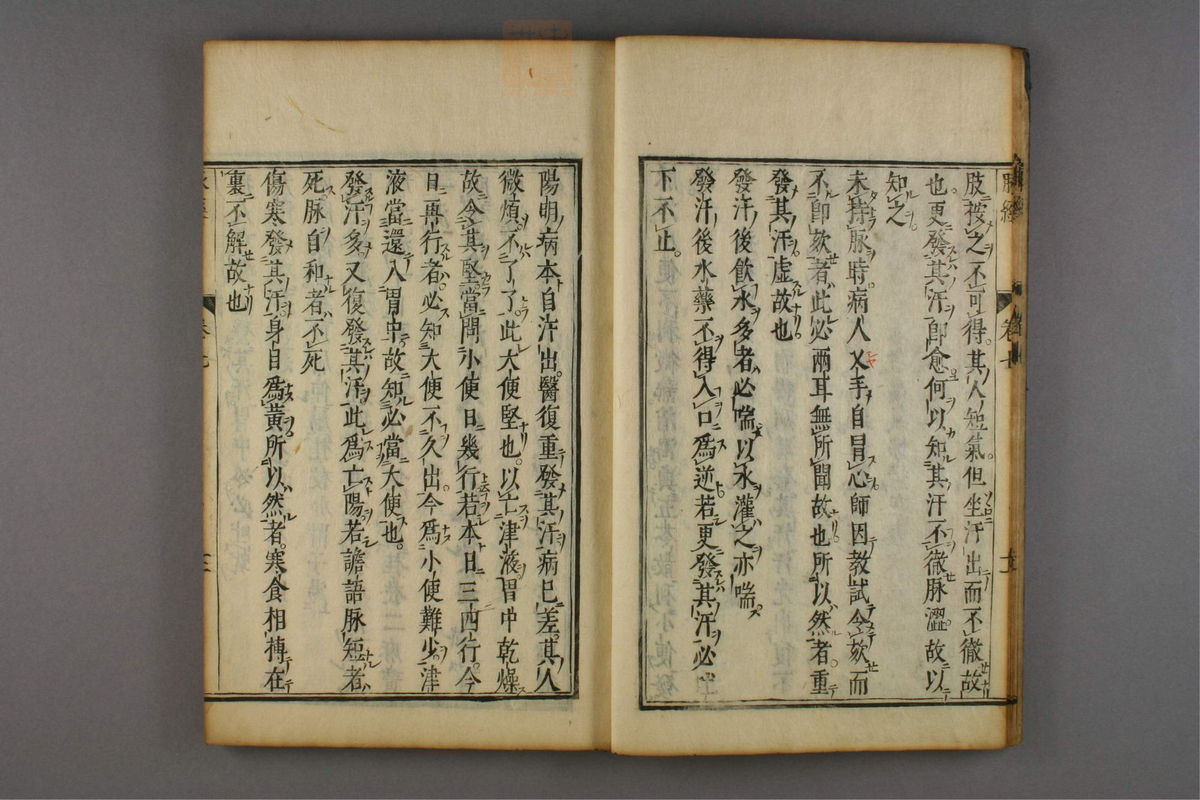 肢按之不可得其人短氣但坐汗出而不徹故
也更發其汗即愈何以知其汗不徹脉澀故以
知之
未持脉時病人叉手自冒心師因教試令欬而
不即欬者此必兩耳無所聞故也所以然者重
發其汗虛故也
發汗後飲水多者必喘以水灌之亦喘
發汗後水藥不得入口爲逆若更發其汗必
下不止
陽明病本自汗出醫復重發其汗病已差其人
微煩不了了此大便堅也以亡津液胃中乾燥
故令其堅當問小便日幾行若本日三四行今
日再行者必知大便不久出今爲小便難少津
液當還入胃中故知必當大便也
發汗多又復發其汗此爲亡陽若譫語脉短者
死脉自和者不死
傷寒發其汗身目爲黃所以然者寒食相搏在
裏不解故也